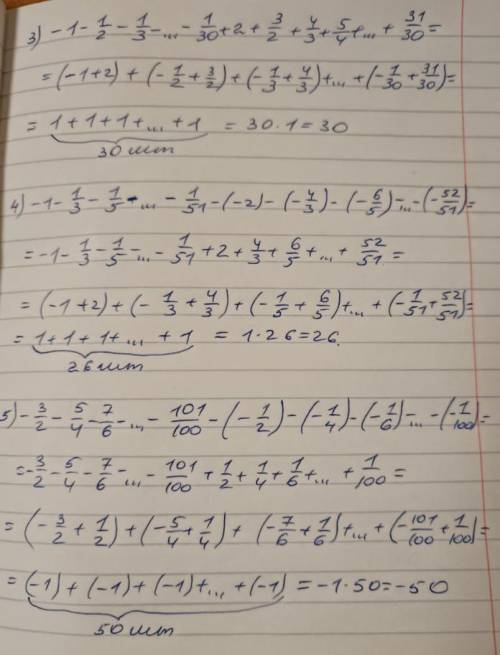 3) -1 - 1/2 - 1/3 - ... - 1/30 + 2 + 3/2 + 4/3 + 5/4 + ... + 31/30 =
= (-1+2) + (-1/2 + 3/2) + (-1/3 + 4/3) + ... + (-1/30 + 31/30) =
= 1+1+1+...+1 = 30·1 = 30
30 шт
4) -1 - 1/3 - 1/5 - ... - 1/51 - (-2) - (-4/3) - (-6/5) - ... - (-52/51) =
= -1 - 1/3 - 1/5 - ... - 1/51 + 2 + 4/3 + 6/5 + ... + 52/51 =
= (-1+2) + (-1/3 + 4/3) + (-1/5 + 6/5) + ... + (-1/51 + 52/51) =
= 1+1+1+...+1 = 1·26 = 26.
26 шт
5) -3/2 - 5/4 - 7/6 - ... - 101/100 - (-1/2) - (-1/4) - (-1/6) - ... - (-1/100) =
= -3/2 - 5/4 - 7/6 - ... - 101/100 + 1/2 + 1/4 + 1/6 + ... + 1/100 =
= (-3/2 + 1/2) + (-5/4 + 1/4) + (-7/6 + 1/6) + ... + (-101/100 + 1/100) =
= (-1) + (-1) + (-1) + ... + (-1) = -1·50 = -50
50 шт